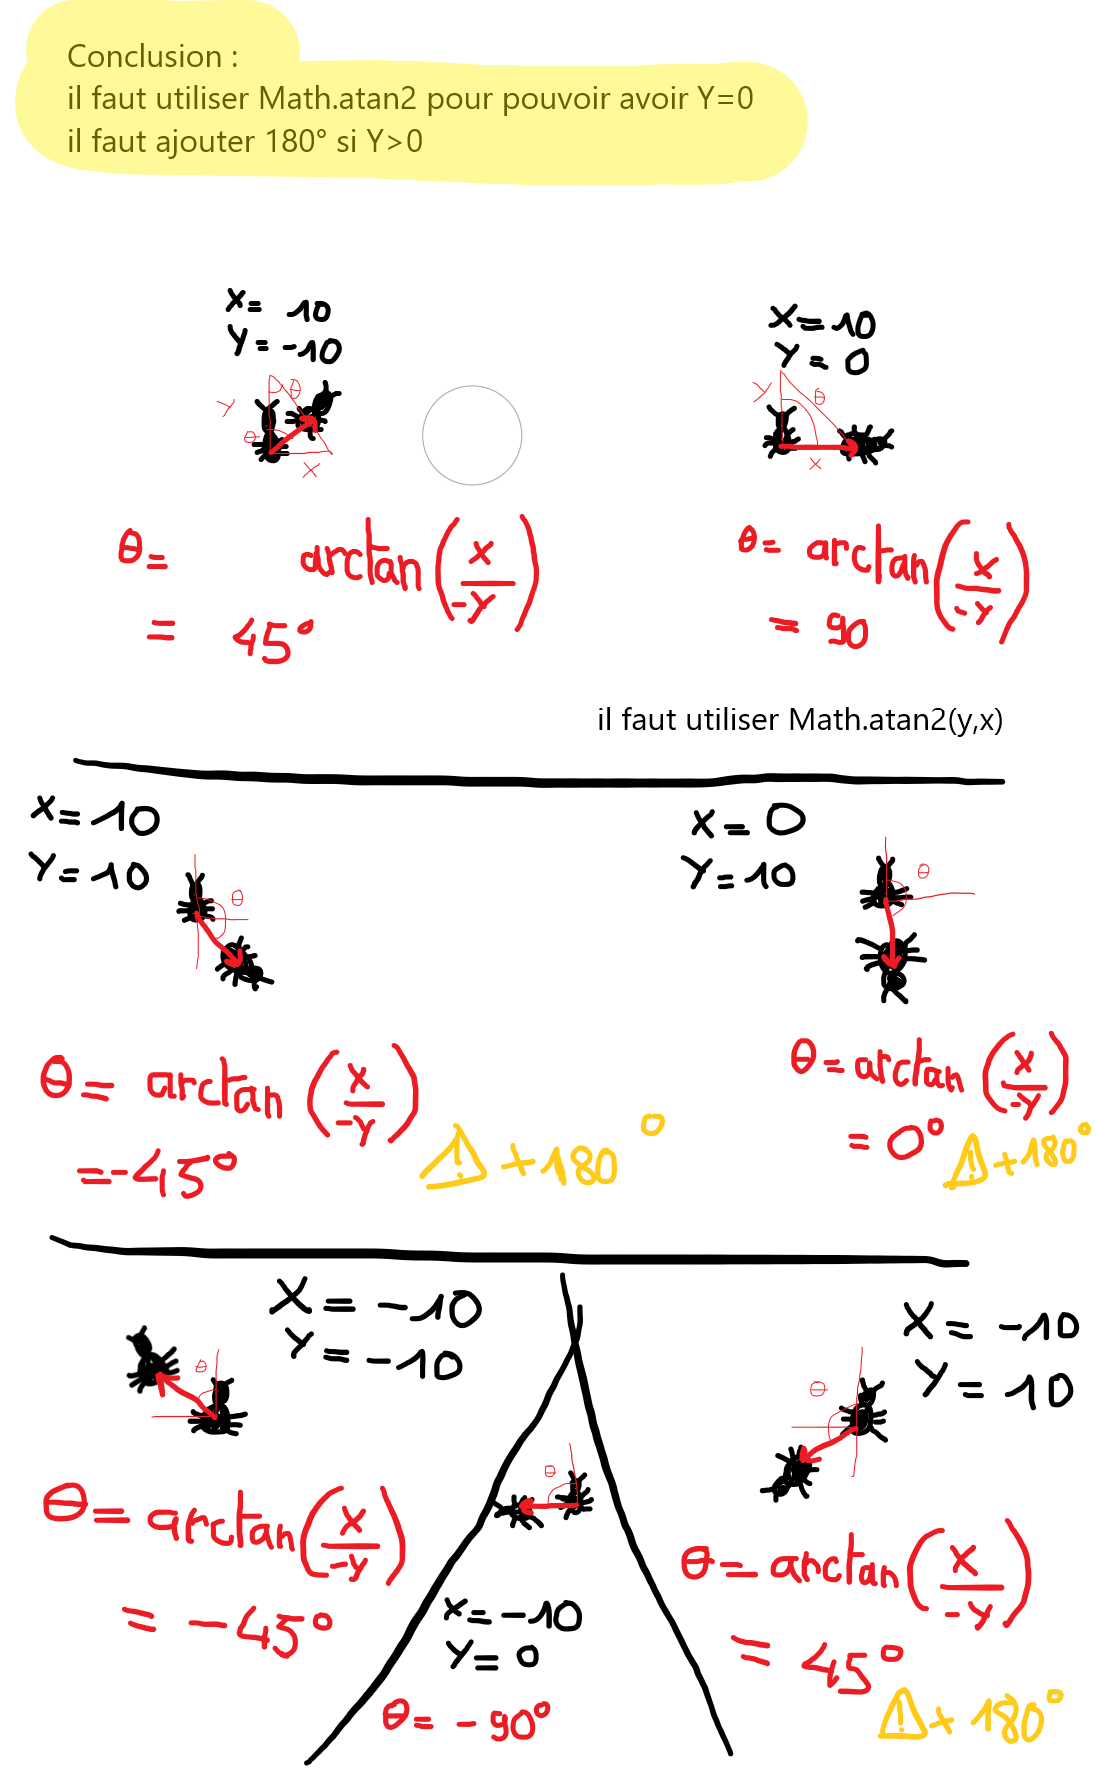 Conclusion :
il faut utiliser Math.atan2 pour pouvoir avoir Y=0
il faut ajouter 180° si Y>0
X= 10
Y= -10
θ
Y
θ
X
θ= arctan(X/-Y)
= 45°
X=10
Y= 0
Y
θ
X
θ= arctan(X/-Y)
= 90
il faut utiliser Math.atan2(y,x)
X=10
Y=10
θ
θ= arctan(X/-Y)
=-45° ⚠ +180°
X= 0
Y=10
θ
θ=arctan(X/-Y)
= 0° ⚠ +180°
X= -10
Y= -10
θ
θ= arctan(X/-Y)
= -45°
θ
X=-10
Y= 0
θ= -90°
X= -10
Y= 10
θ
θ= arctan(X/-Y)
= 45°
⚠ + 180°